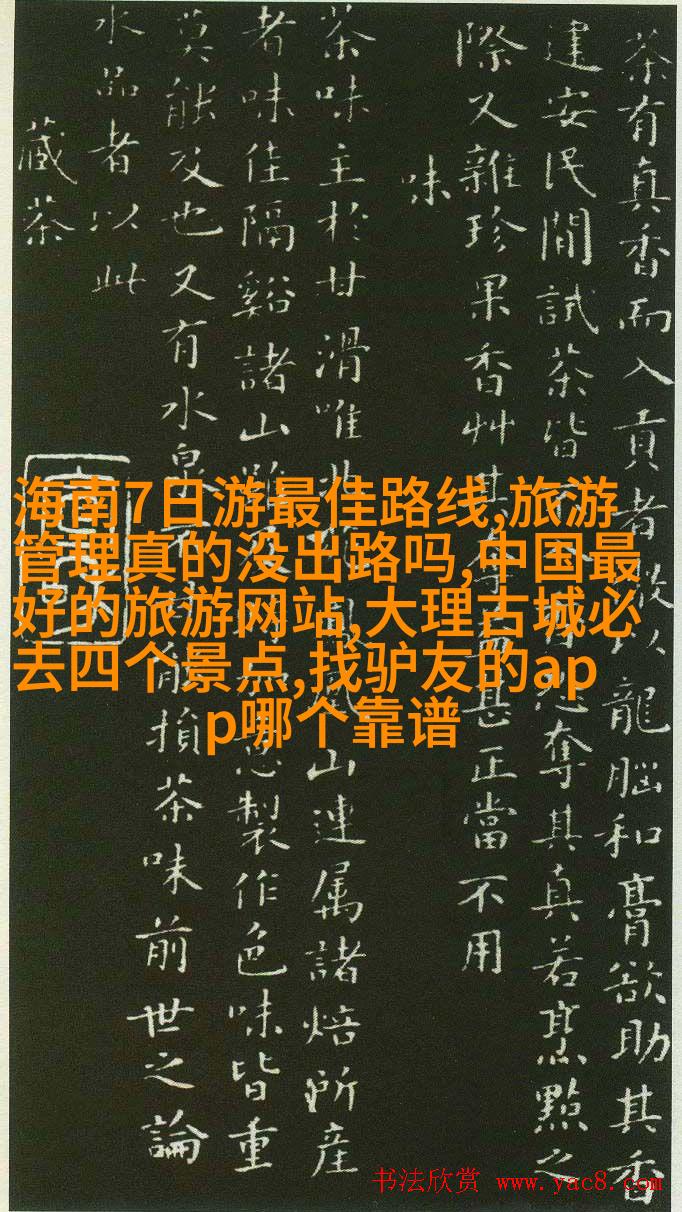 茶有真香而入貢者以龍腦和膏欲助其香
建安民間試茶皆不入香恐奪其真若烹點之
際又雜珍果香艸其奪益甚正當不用
味
茶味主於甘滑唯北苑鳳山連属諸焙所産
者味佳隔谿諸山雖意製作色味皆重
莫能及也又有水泉不能損茶味前世之論
水品者以此
藏茶
海南7日游最佳路线,旅游
管理真的没出路吗,中国最
好的旅游网站,大理古城必
去四个景点,找驴友的ap
p哪个靠谱
书法欣赏 www.yac8.com